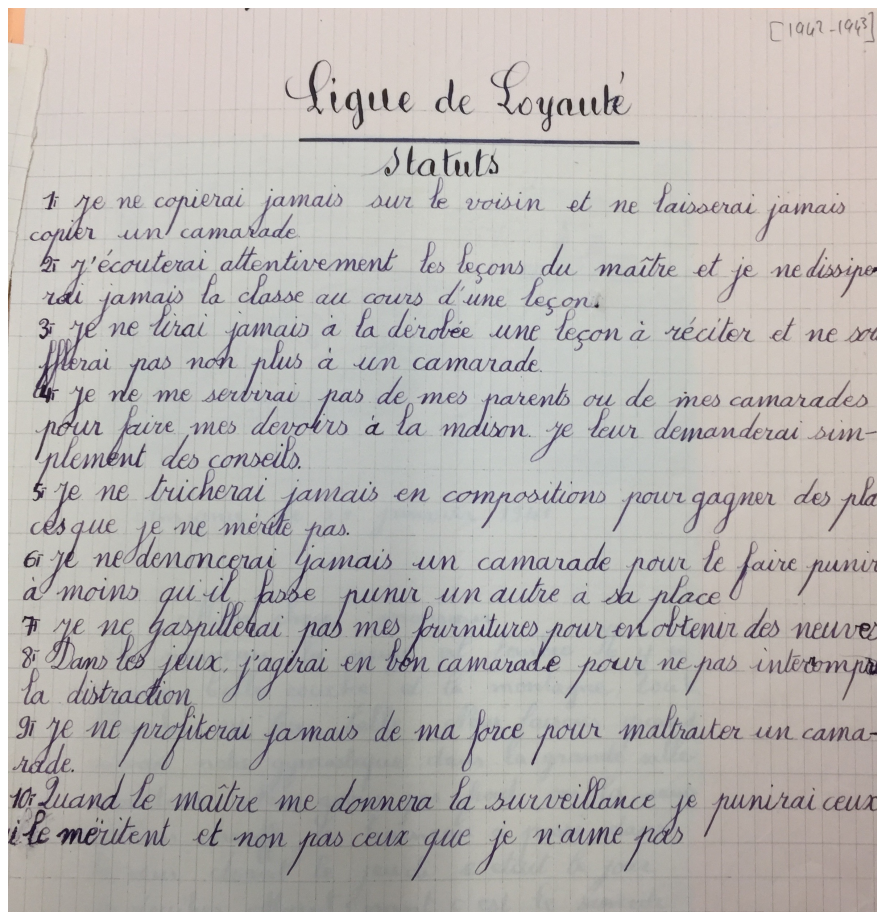 [1942-1943]
Ligue de Loyauté
Statuts
1: Je ne copierai jamais sur le voisin et ne laisserai jamais
copier un camarade
2: J'écouterai attentivement les leçons du maître et je ne dissipe
rai jamais la classe au cours d'une leçon.
3: Je ne lirai jamais à la dérobée une leçon à réciter et ne sou
fflerai pas non plus à un camarade.
4: Je ne me servirai pas de mes parents ou de mes camarades
pour faire mes devoirs à la maison. Je leur demanderai sim-
plement des conseils.
5: Je ne tricherai jamais en compositions pour gagner des pla
ces que je ne mérite pas.
6: Je ne denoncerai jamais un camarade pour le faire punir
à moins qu'il fasse punir un autre à sa place
7: Je ne gaspillerai pas mes fournitures pour en obtenir des neuves
8: Dans les jeux, j'agirai en bon camarade pour ne pas interrompre
la distraction
9: Je ne profiterai jamais de ma force pour maltraiter un cama-
rade.
10: Quand le maître me donnera la surveillance je punirai ceux
i le méritent et non pas ceux que je n'aime pas